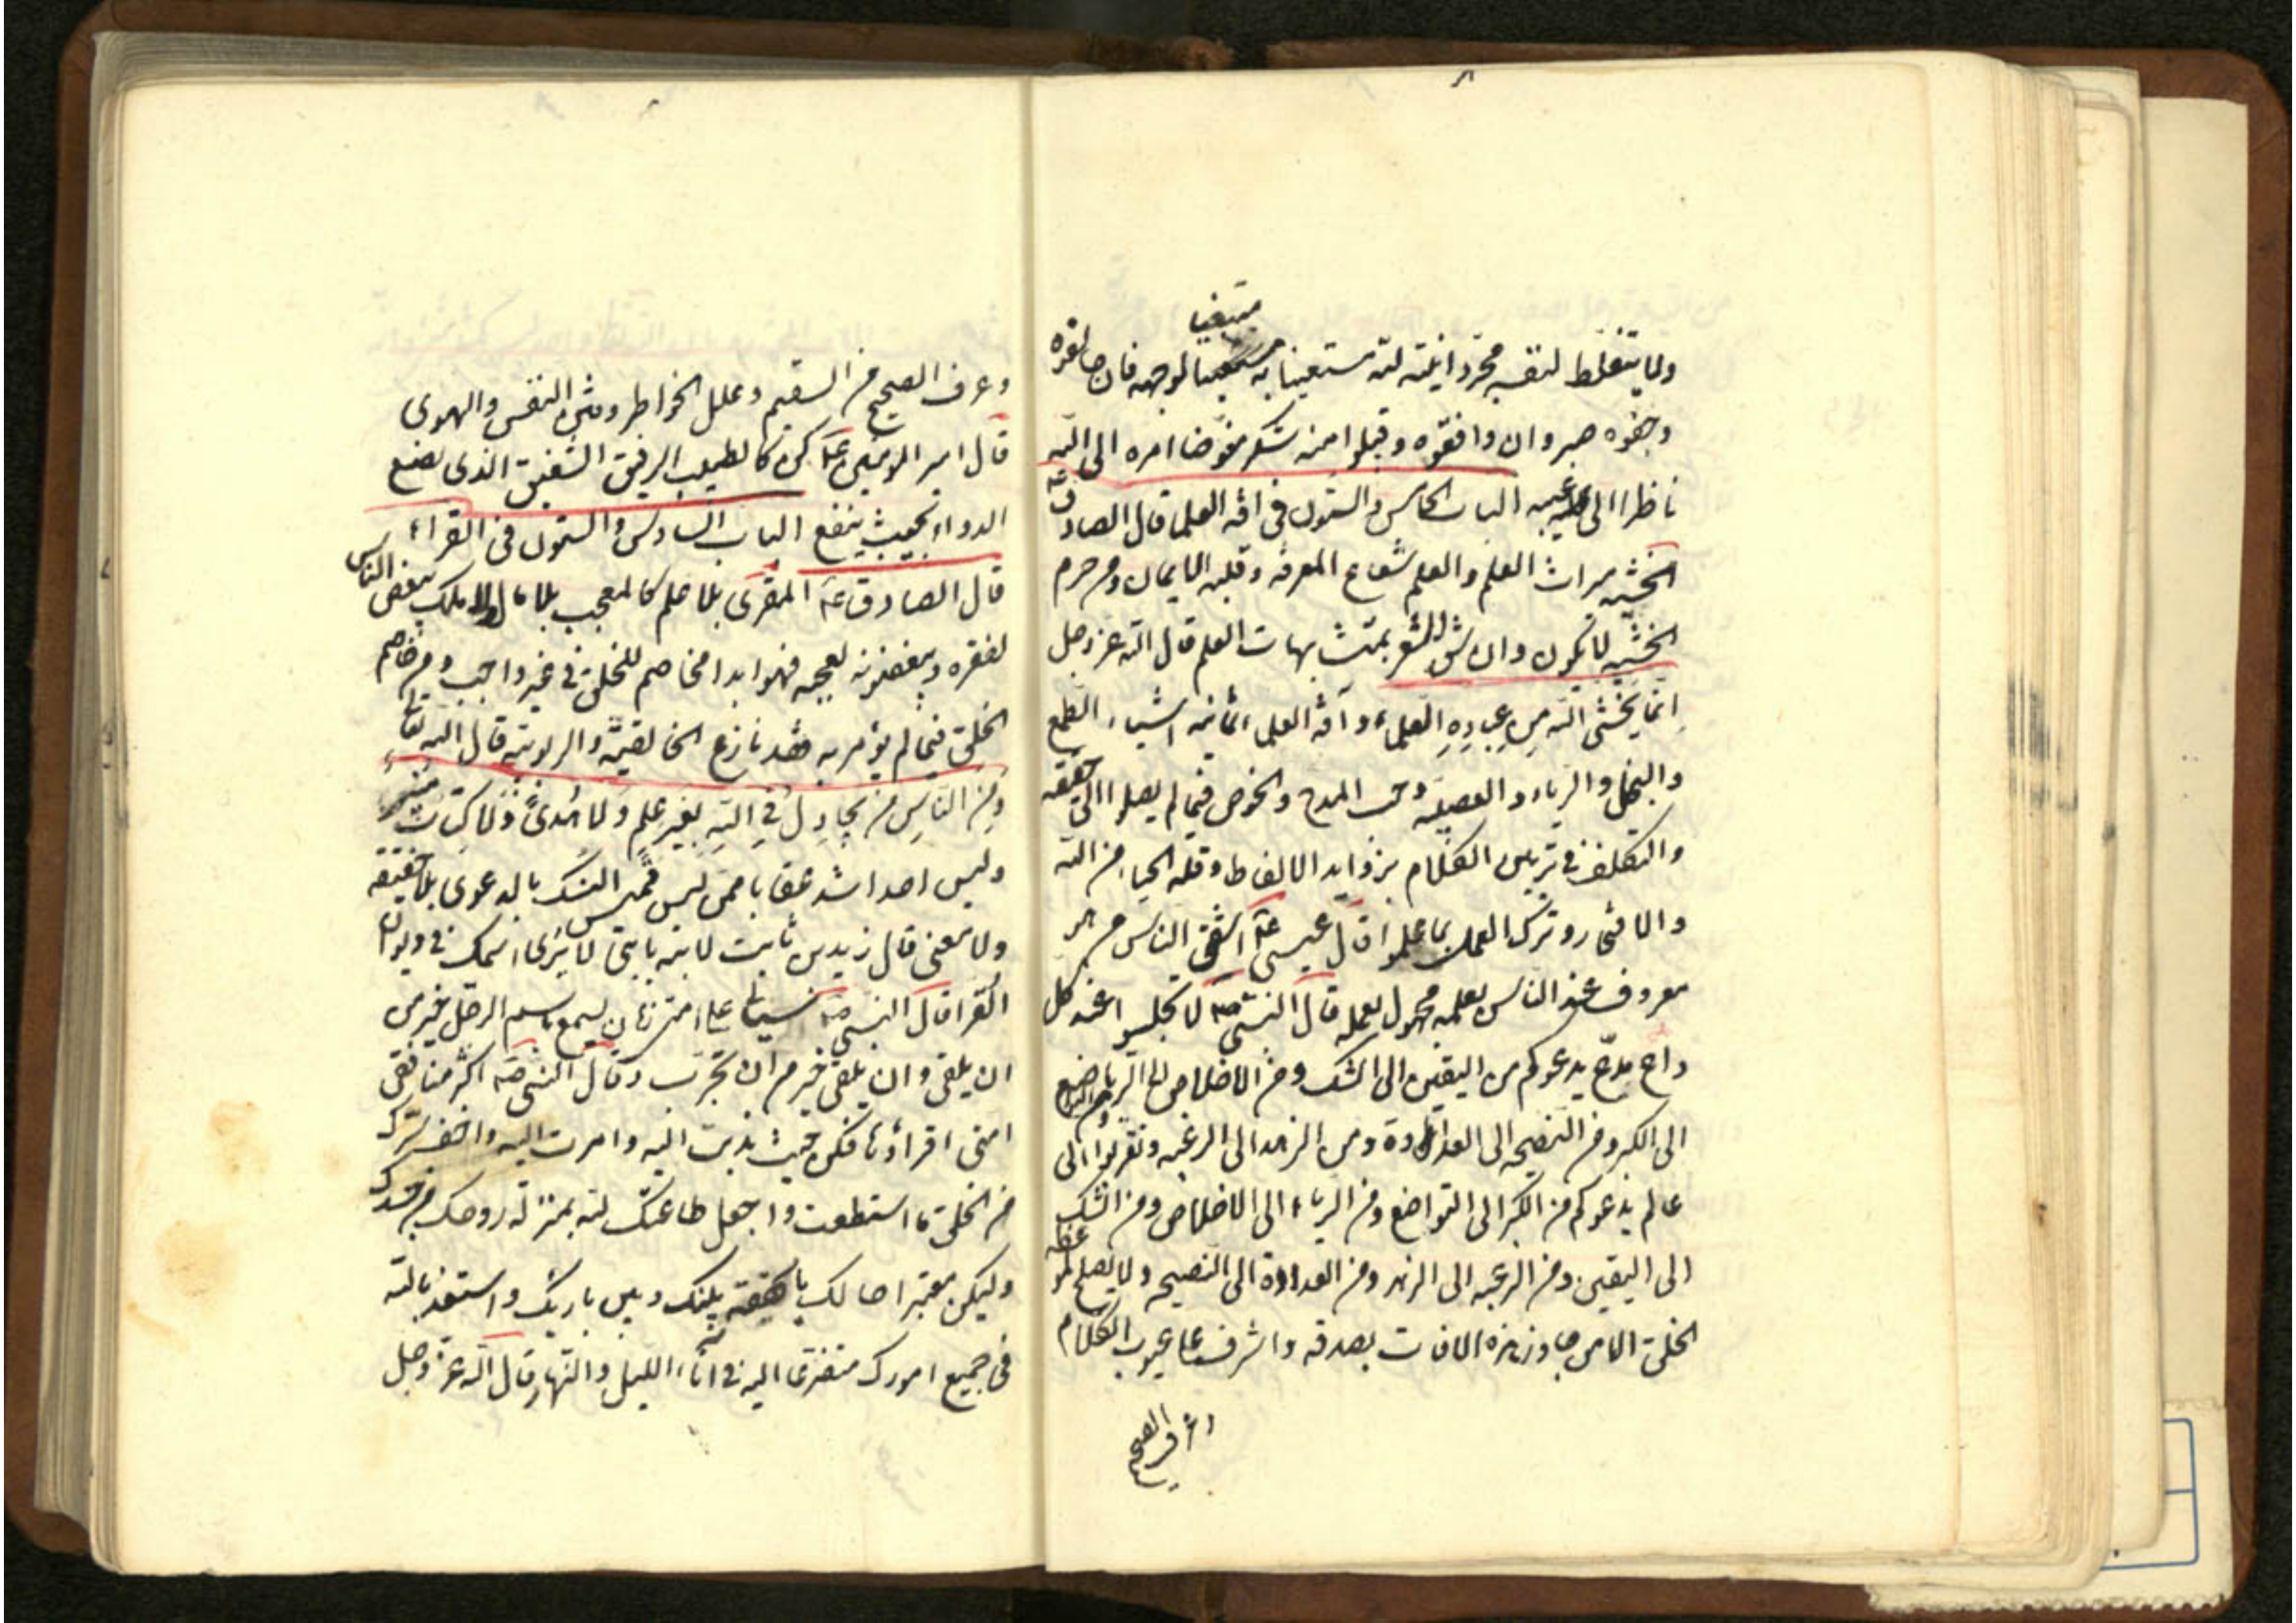 مبتغيا
ولا يتغلظ لنفسه مجردا نيته لله مستعينا به لوجهه فان خالفوه
وجفوه صبر وان وافقوه وقبلوا منه شكر مفوضا امره الى الله
ناظرا الى عيبه الباب الخامس والستون فى افه العلما قال الصادق ع
الخشيه ميراث العلم والعلم شعاع المعرفه وقلب الايمان ومن حرم
الخشيه لا يكون وان شق الشعر بمتشابهات العلم قال الله عز وجل
اِنّما يَخْشَى الله مِن عِبادِهِ العلماء وآفة العلماء ثمانيه اشياء الطمع
والبخل والرياء والعصبيه وحب المدح والخوض فيما لم يصلوا الى حقيقته
والتكلف فى تزيين الكلام بزوايد الالفاظ وقله الحيا من الله
والافتخار وترك العمل بما علموا قال عيسى ع اشقى الناس من هو
معروف عند الناس بعلمه مجهول بعمله قال النبى ص لا تجلسوا عند كل
داع مدّع يدعوكم من اليقين الى الشك ومن الاخلاص الى الريا ومن التواضع
الى الكبر ومن النصيحه الى العداوة ومن الزهد الى الرغبه وتقربوا الى
عالم يدعوكم من الكبر الى التواضع ومن الرياء الى الاخلاص ومن الشك
الى اليقين ومن الرغبه الى الزهد ومن العداوة الى النصيحه ولا يصلح لموعظه
الخلق الا من جاوز هذه الافات بصدقه واشرف على عيوب الكلام
وعرف الصحيح
وعرف الصحيح من السقيم وعلل الخواطر وفتن النفس والهوى
قال امير المومنين ع كن كالطبيب الرفيق الشفيق الذى يضع
الدواء بحيث ينفع الباب السادس والستون فى القراء
قال الصادق ع المقرى بلا علم كالمعجب بلا مال ولا ملك يبغض الناس
لفقره ويبغضونه لعجبه فهو ابدا مخاصم للخلق فى غير واجب ومن خاصم
الخلق فيما لم يؤمر به فقد نازع الخالقيّة والربوبيّة قال الله تعالى
ومِن النّاسِ من يُجادِلُ فِى اللهِ بغيرِ عِلمٍ وَلا هُدىً وَلا كِتابٍ مُنير
وليس احد اشد عقابا ممن لبس قميص النسك بالدعوى بلا حقيقه
ولا معنى قال زيد بن ثابت لابنه يا بنى لا يرى اسمك فى ديوان
القرا قال النبى ص سياتى على امتى زمان يسمع باسم الرجل خير من
ان يلقى وان يلقى خير من ان تجرب وقال النبى ص اكثر منافقى
امتى اقراؤنا فكن حيث ندبت اليه وامرت اليه واخف سرك
من الخلق ما استطعت واجعل طاعتك لله بمنزله روحك من جسدك
وليكن معتبرا حالك ما تحققه بينك وبين باريك واستعذ بالله
فى جميع امورك متضرعا اليه فى اناء الليل والنهار قال الله عز وجل